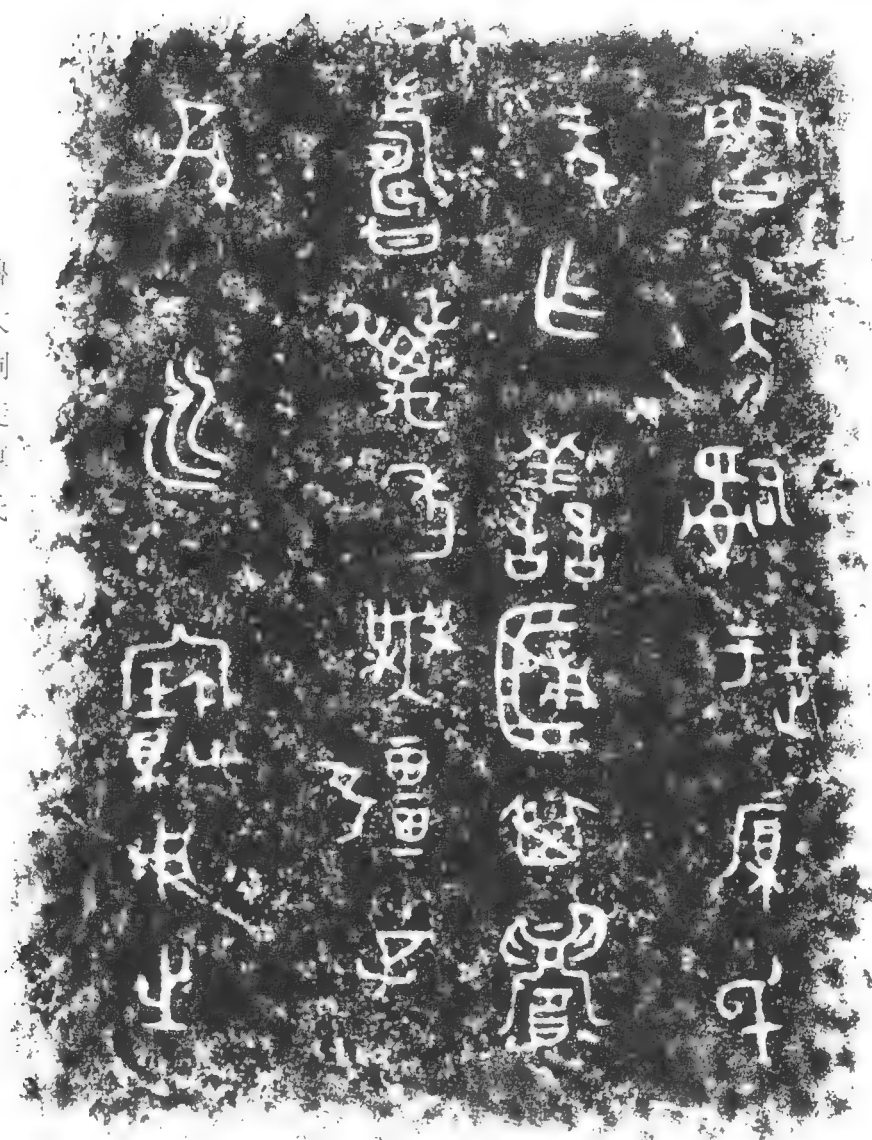 魯大𤔲徒厚氏
元乍譱𠤳其眉
壽萬年無疆子
孫永寶用之